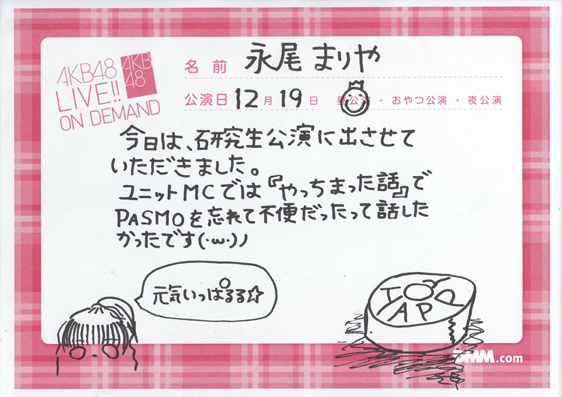 AKB48
LIVE!!
ON DEMAND
AKB
48
名前 永尾まりや
公演日 12月19日 昼公演・おやつ公演・夜公演
今日は、研究生公演に出させて
いただきました。
ユニットMCでは『やっちまった話』で
PASMOを忘れて不便だったって話した
かったです(・ω・)ノ
元気いっぱるる☆
.com